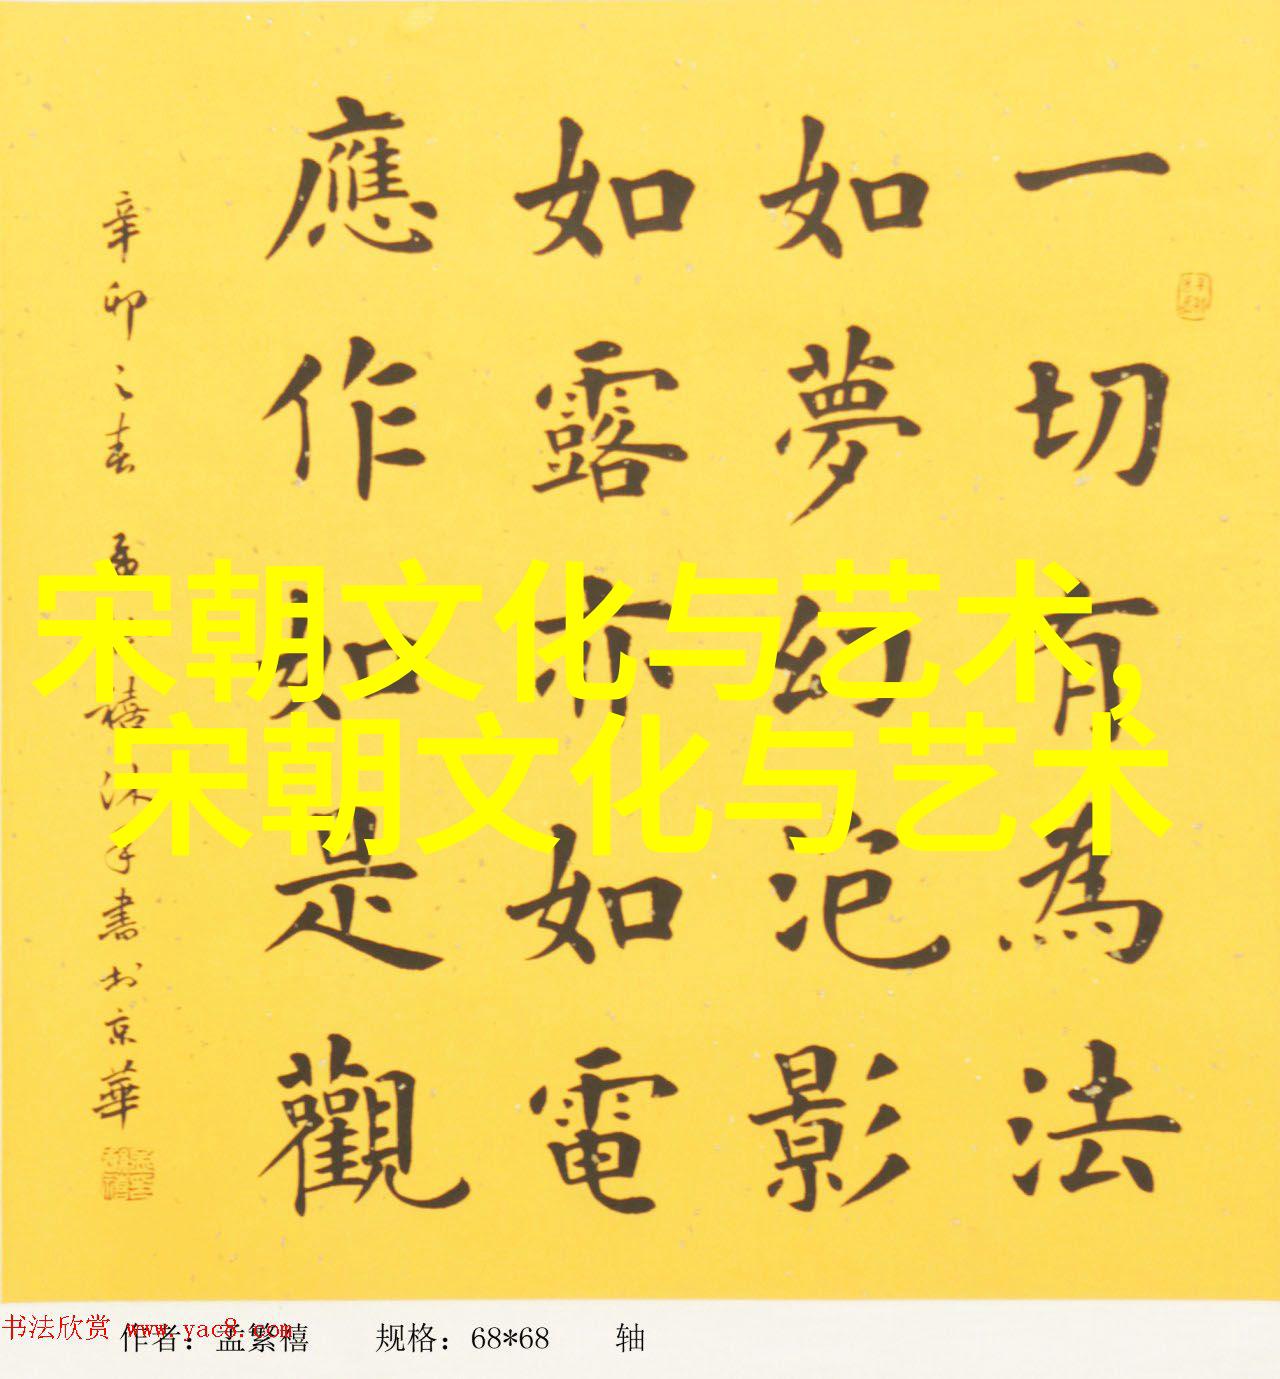 一切有為法
如夢幻泡影
如露亦如電
應作如是觀
辛卯之春 孟繁禧沐手書於京華
宋朝文化与艺术,
宋朝文化与艺术
书法欣赏 www.yac8.com
作者：孟繁禧 规格：68*68 轴